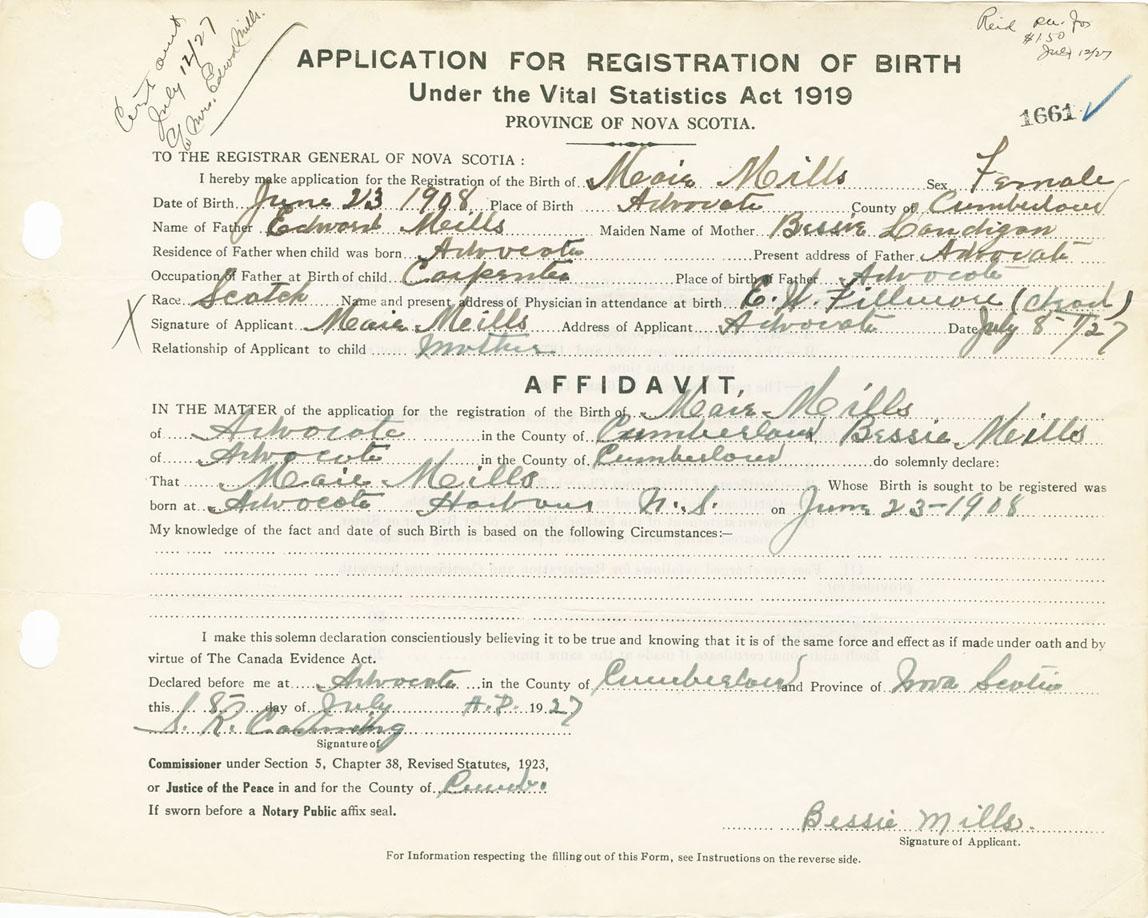 Cert sent
July 12/27
c/o Mrs. Edward Mills.
Reid per. Jos
$1.50
July 12/27
APPLICATION FOR REGISTRATION OF BIRTH
Under the Vital Statistics Act 1919
PROVINCE OF NOVA SCOTIA.
1661
TO THE REGISTRAR GENERAL OF NOVA SCOTIA :
I hereby make application for the Registration of the Birth of Maie Mills Sex Female
Date of Birth June 23 1908 Place of Birth Advocate County of Cumberland
Name of Father Edward Mills Maiden Name of Mother Bessie Landigan
Residence of Father when child was born Advocate Present address of Father Advocate
Occupation of Father at Birth of child Carpenter Place of birth of Father Advocate
X Race Scotch Name and present address of Physician in attendance at birth E. H. Fillmore (dead)
Signature of Applicant Maie Mills Address of Applicant Advocate Date July 8-7/27
Relationship of Applicant to child Mother
AFFIDAVIT,
IN THE MATTER of the application for the registration of the Birth of Maie Mills
of Advocate in the County of Cumberland Bessie Mills
of Advocate in the County of Cumberland do solemnly declare:
That Maie Mills Whose Birth is sought to be registered was
born at Advocate Harbour N.S. on June 23-1908
My knowledge of the fact and date of such Birth is based on the following Circumstances:—
I make this solemn declaration conscientiously believing it to be true and knowing that it is of the same force and effect as if made under oath and by
virtue of The Canada Evidence Act.
Declared before me at Advocate in the County of Cumberland and Province of Nova Scotia
this 8 day of July A.D. 1927
S. R.
Signature of
Commissioner under Section 5, Chapter 38, Revised Statutes, 1923,
or Justice of the Peace in and for the County of Cumb.
If sworn before a Notary Public affix seal.
Bessie Mills.
Signature of Applicant.
For Information respecting the filling out of this Form, see Instructions on the reverse side.